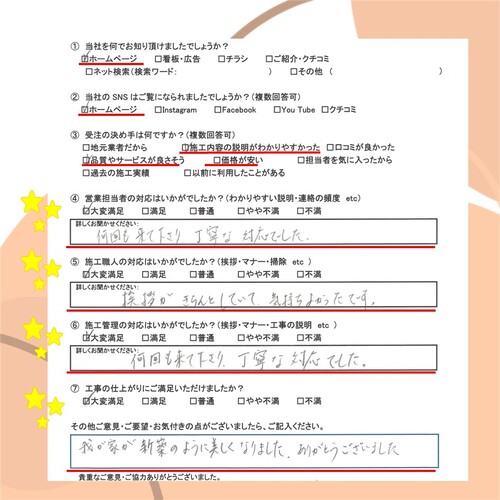 ① 当社を何でお知り頂けましたでしょうか？
☑ホームページ □看板・広告 □チラシ □ご紹介・クチコミ
□ネット検索（検索ワード： ） □その他（ ）
② 当社の SNS はご覧になられましたでしょうか？（複数回答可）
☑ホームページ □Instagram □Facebook □You Tube □クチコミ
③ 受注の決め手は何ですか？（複数回答可）
□地元業者だから ☑施工内容の説明がわかりやすかった □口コミが良かった
☑品質やサービスが良さそう ☑価格が安い □担当者を気に入ったから
□過去の施工実績 □以前に利用したことがある
④ 営業担当者の対応はいかがでしたか？（わかりやすい説明・連絡の頻度 etc）
☑大変満足 □満足 □普通 □やや不満 □不満
詳しくお聞かせください：
何回も来て下さり、丁寧な対応でした。
⑤ 施工職人の対応はいかがでしたか？（挨拶・マナー・掃除 etc ）
☑大変満足 □満足 □普通 □やや不満 □不満
詳しくお聞かせください：
挨拶がきちんとしていて、気持ちよかったです。
⑥ 施工管理の対応はいかがでしたか？（挨拶・マナー・工事の説明 etc ）
☑大変満足 □満足 □普通 □やや不満 □不満
詳しくお聞かせください：
何回も来て下さり、丁寧な対応でした。
⑦ 工事の仕上がりにご満足いただけましたか？
☑大変満足 □満足 □普通 □やや不満 □不満
その他ご意見・ご要望・お気付きの点がございましたら、ご記入ください。
我が家が新築のように美しくなりました。ありがとうございました
貴重なご意見・ご協力ありがとうございました。